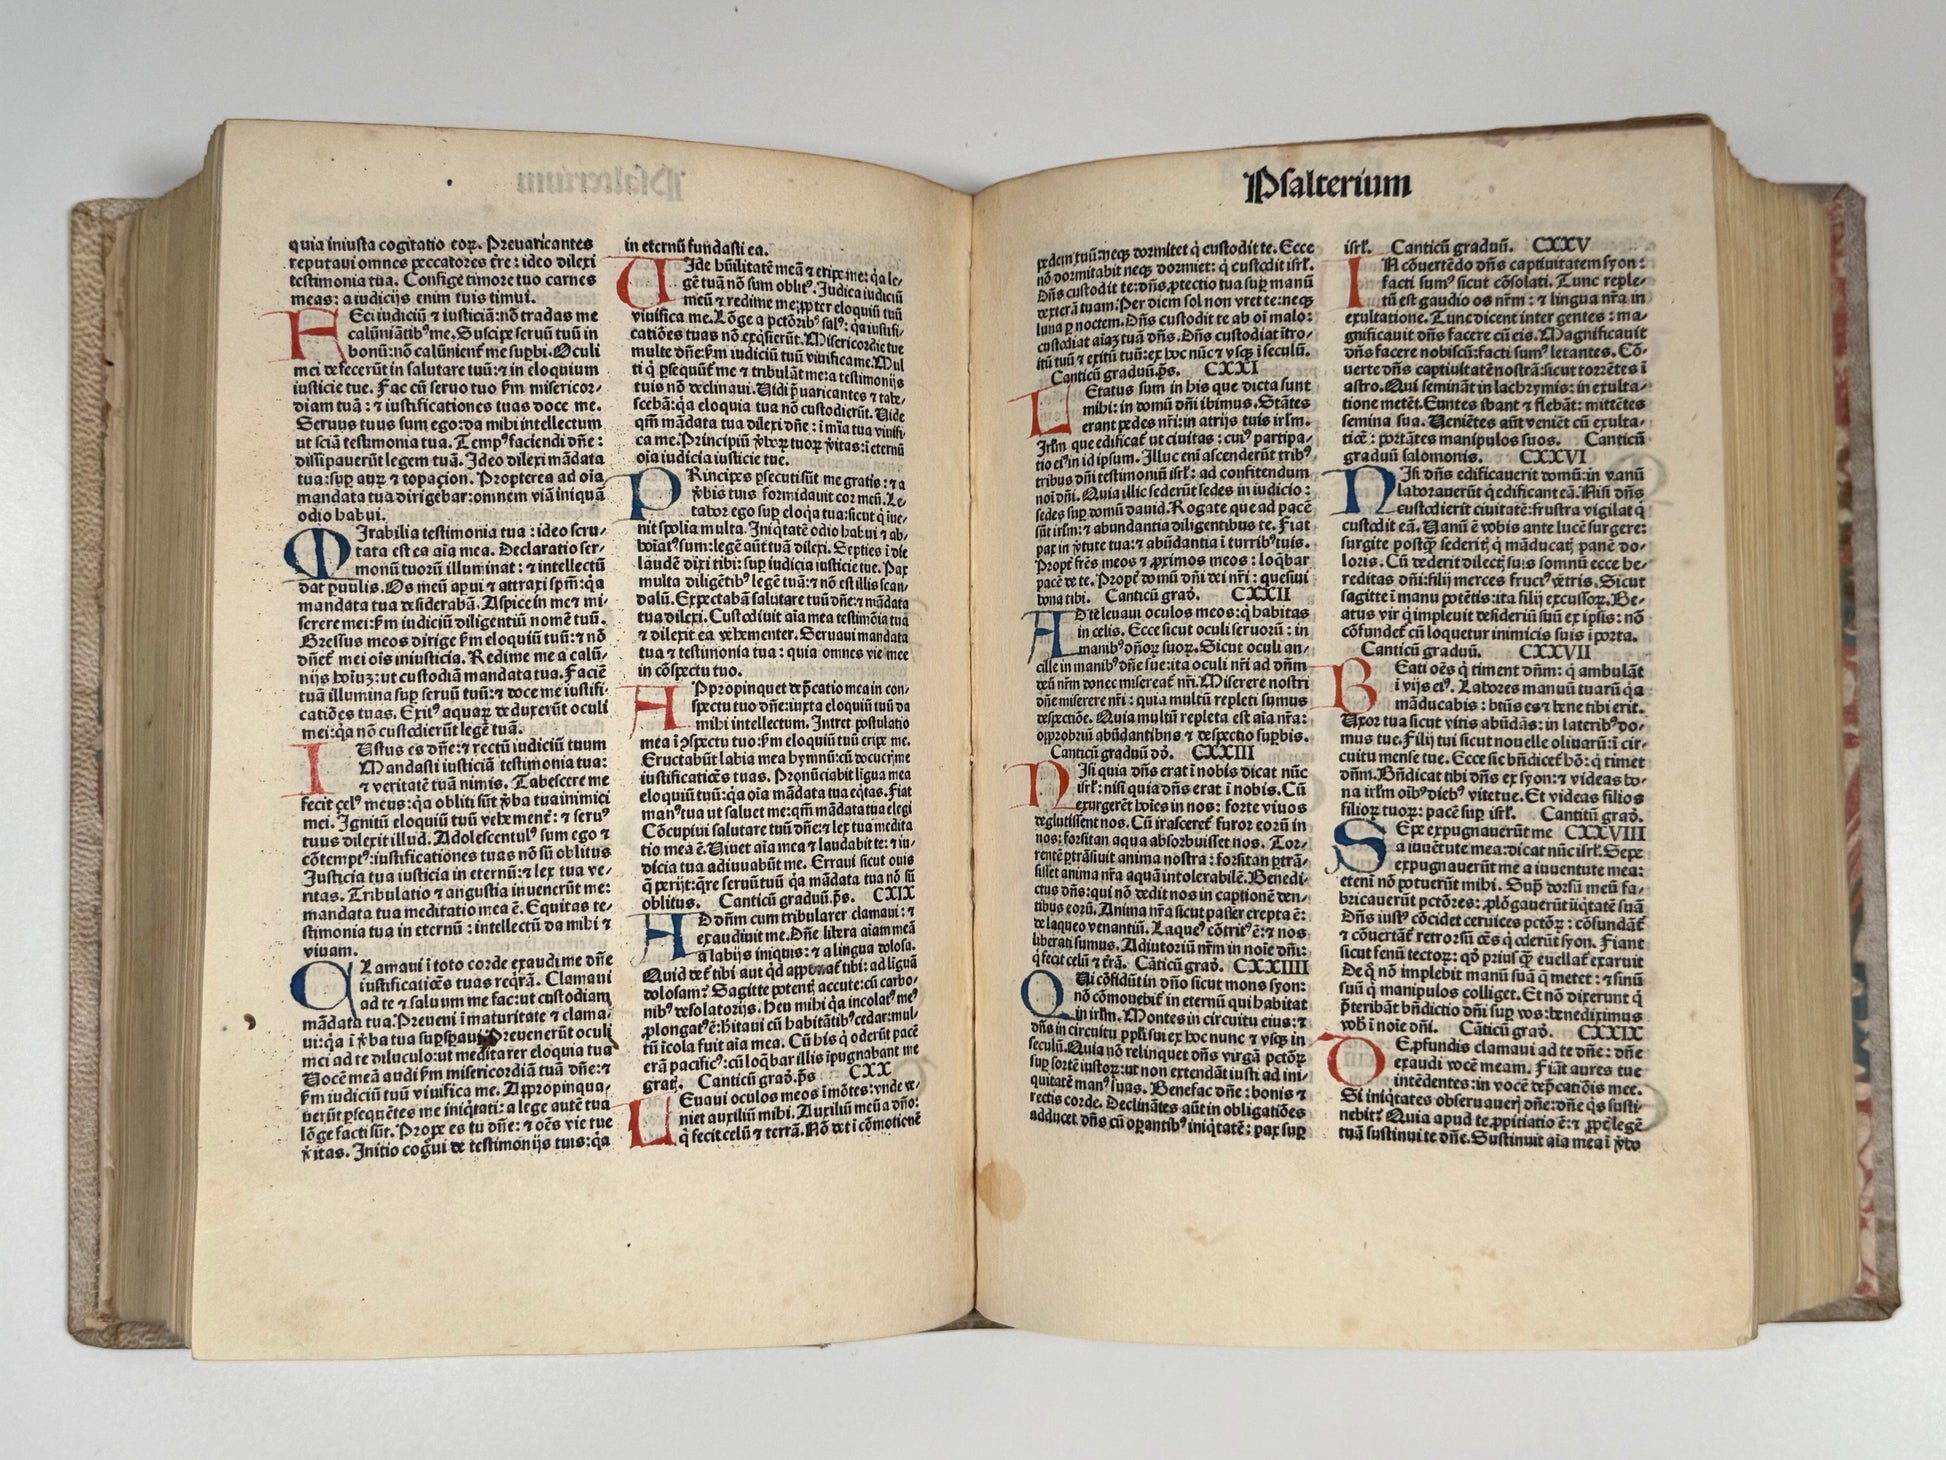 quia iniusta cogitatio eoꝝ. Preuaricantes
reputaui omnes peccatores t̄re: ideo dilexi
testimonia tua. Confige timore tuo carnes
meas: a iudicijs enim tuis timui.
FEci iudiciū ⁊ iusticiā: nō tradas me
calūniātibꝰ me. Suscipe seruū tuū in
bonū: nō calūnient᷑ me supbi. Oculi
mei defecerūt in salutare tuū: ⁊ in eloquium
iusticie tue. Fac cū seruo tuo ẜm misericor-
diam tuā: ⁊ iustificationes tuas doce me.
Seruus tuus sum ego: da mihi intellectum
ut sciā testimonia tua. Tempꝰ faciendi dn̄e:
dissipauerūt legem tuā. Ideo dilexi mādata
tua: suꝑ auꝝ ⁊ topaçion. Propterea ad oīa
mandata tua dirigebar: omnem viā iniquā
odio habui.
MIrabilia testimonia tua: ideo scru-
tata est ea aīa mea. Declaratio ser-
monū tuorū illuminat: ⁊ intellectū
dat ꝑuulis. Os meū aꝑui ⁊ attraxi sp̄m: q̄a
mandata tua desiderabā. Aspice in me ⁊ mi-
serere mei: ẜm iudiciū diligentiū nomē tuū.
Gressus meos dirige ẜm eloquiū tuū: ⁊ nō
dn̄et᷑ mei oīs iniusticia. Redime me a calū-
nijs hoīuꝫ: ut custodiā mandata tua. Faciē
tuā illumina suꝑ seruū tuū: ⁊ doce me iustifi-
catiōes tuas. Exitꝰ aquaꝝ deduxerūt oculi
mei: q̄a nō custodierūt legē tuā.
IUstus es dn̄e: ⁊ rectū iudiciū tuum
Mandasti iusticiā testimonia tua:
⁊ veritatē tuā nimis. Tabescere me
fecit çelꝰ meus: q̄a obliti sūt v̄ba tua inimici
mei. Ignitū eloquiū tuū vehement᷑: ⁊ seruꝰ
tuus dilexit illud. Adolescentulꝰ sum ego ⁊
cōtemptꝰ: iustificationes tuas nō sū oblitus
Justicia tua iusticia in eternū: ⁊ lex tua ve-
ritas. Tribulatio ⁊ angustia inuenerūt me:
mandata tua meditatio mea ē. Equitas te-
stimonia tua in eternū: intellectū da mihi ⁊
viuam.
CLamaui ī toto corde exaudi me dn̄e
iustificatiōes tuas reqrā. Clamaui
ad te ⁊ saluum me fac: ut custodiam
mādata tua. Preueni ī maturitate ⁊ clama-
ui: q̄a ī v̄ba tua suꝑspaui Preuenerūt oculi
mei ad te diluculo: ut meditarer eloquia tua
Uocē meā audi ẜm misericordiā tuā dn̄e: ⁊
ẜm iudiciū tuū viuifica me. Appropinqua-
uerūt ꝑsequētes me iniq̄tati: a lege autē tua
lōge facti sūt. Prope es tu dn̄e: ⁊ oēs vie tue
v̄itas. Initio cogūi de testimonijs tuis: q̄a
in eternū fundasti ea.
UIde hūilitatē meā ⁊ eripe me: q̄a le-
gē tuā nō sum oblitꝰ. Iudica iudiciū
meū ⁊ redime me: ꝓpter eloquiū tuū
viuifica me. Lōge a pctōribꝰ salꝰ: q̄a iustifi-
catiōes tuas nō exq̄sierūt. Misericordie tue
multe dn̄e: ẜm iudiciū tuū viuifica me. Mul
ti q̄ ꝑsequūt᷑ me ⁊ tribulāt me: a testimonijs
tuis nō declinaui. Uidi p̄uaricantes ⁊ tabe-
scebā: q̄a eloquia tua nō custodierūt. Uide
qm̄ mādata tua dilexi dn̄e: ī mīa tua viuifi-
ca me. Principiū v̄boꝝ tuoꝝ v̄itas: ī eternū
oīa iudicia iusticie tue.
PRincipes ꝑsecuti sūt me gratis: ⁊ a
v̄bis tuis formidauit cor meū. Le-
tabor ego suꝑ eloq̄a tua: sicut q̄ iue-
nit spolia multa. Iniq̄tatē odio habui ⁊ ab-
hoīatꝰ sum: legē aūt tuā dilexi. Septies ī die
laudē dixi tibi: suꝑ iudicia iusticie tue. Pax
multa diligētibꝰ legē tuā: ⁊ nō est illis scan-
dalū. Expectabā salutare tuū dn̄e: ⁊ mādata
tua dilexi. Custodiuit aīa mea testimōia tua
⁊ dilexit ea vehementer. Seruaui mandata
tua ⁊ testimonia tua: quia omnes vie mee
in cōspectu tuo.
APpropinquet dep̄catio mea in con-
spectu tuo dn̄e: iuxta eloquiū tuū da
mihi intellectum. Intret postulatio
mea ī ꝯspectu tuo: ẜm eloquiū tuū eripe me.
Eructabūt labia mea hymnū: cū docueris me
iustificatiōes tuas. Pronūciabit ligua mea
eloquiū tuū: q̄a oīa mādata tua eq̄tas. Fiat
manꝰ tua ut saluet me: qm̄ mādata tua elegi
Cōcupiui salutare tuū dn̄e: ⁊ lex tua medita
tio mea ē. Uiuet aīa mea ⁊ laudabit te: ⁊ iu-
dicia tua adiuuabūt me. Erraui sicut ouis
q̄ perijt: q̄re seruū tuū q̄a mādata tua nō sū
oblitus. Canticū graduū. p̄s. CXIX
AD dn̄m cum tribularer clamaui: ⁊
exaudiuit me. Dn̄e libera aīam meā
a labijs iniquis: ⁊ a lingua dolosa.
Quid det᷑ tibi aut q̄d apponat᷑ tibi: ad liguā
dolosam? Sagitte potentꝭ accute: cū carbo-
nibꝰ desolatorijs. Heu mihi q̄a incolatꝰ meꝰ
ꝓlongatꝰ ē: h̄itaui cū habitātibꝰ cedar: mul-
tū īcola fuit aīa mea. Cū his q̄ oderūt pacē
erā pacificꝰ: cū loq̄bar illis īpugnabant me
gratꝭ. Canticū grad̄. p̄s CXX
LEuaui oculos meos ī mōtes: vnde ve-
niet auxiliū mihi. Auxiliū meū a dn̄o:
q̄ fecit celū ⁊ terrā. Nō det ī cōmotionē
Psalterium
pedem tuū: neqꝫ dormitet q̄ custodit te. Ecce
nō dormitabit neqꝫ dormiet: q̄ custodit isrł.
Dn̄s custodit te: dn̄s ꝓtectio tua suꝑ manū
dexterā tuam. Per diem sol non vret te: neqꝫ
luna ꝑ noctem. Dn̄s custodit te ab oī malo:
custodiat aīaꝫ tuā dn̄s. Dn̄s custodiat ītro-
itū tuū ⁊ exitū tuū: ex hoc nūc ⁊ vsqꝫ ī seculū.
Canticū graduū. p̄s. CXXI
LEtatus sum in his que dicta sunt
mihi: in domū dn̄i ibimus. Stātes
erant pedes nr̄i: in atrijs tuis irłm.
Irłm que edificat᷑ ut ciuitas: cuiꝰ partipa-
tio eiꝰ in id ipsum. Illuc eni ascenderūt tribꝰ
tribus dn̄i testimoniū isrł: ad confitendum
noī dn̄i. Quia illic sederūt sedes in iudicio:
sedes suꝑ domū dauid. Rogate que ad pacē
sūt irłm: ⁊ abundantia diligentibus te. Fiat
pax in v̄tute tua: ⁊ abūdantia ī turribꝰ tuis.
Propt᷑ fr̄es meos ⁊ ꝓximos meos: loq̄bar
pacē de te. Propt᷑ domū dn̄i dei nr̄i: quesiui
bona tibi. Canticū grad̄. CXXII
AD te leuaui oculos meos: q̄ habitas
in celis. Ecce sicut oculi seruorū: in
manibꝰ dn̄oꝝ suoꝝ. Sicut oculi an-
cille in manibꝰ dn̄e sue: ita oculi nr̄i ad dn̄m
deū nr̄m donec misereat᷑ nr̄i. Miserere nostri
dn̄e miserere nr̄i: quia multū repleti sumus
despectiōe. Quia multū repleta est aīa nr̄a:
opprobriū abūdantibus ⁊ despectio supbis.
Canticū graduū dd̄. CXXIII
NIsi quia dn̄s erat ī nobis dicat nūc
isrł: nisi quia dn̄s erat ī nobis. Cū
exurgerēt hoīes in nos: forte viuos
deglutissent nos. Cū irasceret᷑ furor eorū in
nos: forsitan aqua absorbuisset nos. Tor-
rentē ꝑtrāsiuit anima nostra: forsitan ꝑtrā-
sisset anima nr̄a aquā intolerabilē. Benedi-
ctus dn̄s: qui nō dedit nos in captionē den-
tibus eorū. Anima nr̄a sicut passer erepta ē:
de laqueo venantiū. Laqueꝰ cōtritꝰ ē: ⁊ nos
liberati sumus. Adiutoriū nr̄m in noīe dn̄i:
q̄ fecit celū ⁊ t̄rā. Cāticū grad̄. CXXIIII
QUi cōfidūt in dn̄o sicut mons syon:
nō cōmouebit᷑ in eternū qui habitat
in irłm. Montes in circuitu eius: ⁊
dn̄s in circuitu ppłi sui ex hoc nunc ⁊ vsqꝫ in
seculū. Quia nō relinquet dn̄s virgā pctōꝝ
suꝑ sortē iustoꝝ: ut non extendāt iusti ad ini-
quitatē manꝰ suas. Benefac dn̄e: bonis ⁊
rectis corde. Declinātes aūt in obligatiōes
adducet dn̄s cū oꝑantibꝰ iniq̄tatē: pax suꝑ
isrł. Canticū graduū. CXXV
IN cōuertēdo dn̄s captiuitatem syon:
facti sumꝰ sicut cōsolati. Tunc reple-
tū est gaudio os nr̄m: ⁊ lingua nr̄a in
exultatione. Tunc dicent inter gentes: ma-
gnificauit dn̄s facere cū eis. Magnificauit
dn̄s facere nobiscū: facti sumꝰ letantes. Cō-
uerte dn̄s captiuitatē nostrā: sicut torrētes ī
astro. Qui semināt in lachrymis: in exulta-
tione metēt. Euntes ibant ⁊ flebāt: mittētes
semina sua. Ueniētes aūt veniēt cū exulta-
tiōe: portātes manipulos suos. Canticū
graduū salomonis. CXXVI
NIsi dn̄s edificauerit domū: in vanū
laborauerūt q̄ edificant eā. Nisi dn̄s
custodierit ciuitatē: frustra vigilat q̄
custodit eā. Uanū ē vobis ante lucē surgere:
surgite postq̄ꝫ sederitꝭ q̄ māducatꝭ panē do-
loris. Cū dederit dilectꝭ suis somnū ecce he-
reditas dn̄i: filij merces fructꝰ vētris. Sicut
sagitte ī manu potētis: ita filij excussoꝝ. Be-
atus vir q̄ impleuit desideriū suū ex ipsis: nō
cōfundet᷑ cū loquetur inimicis suis ī porta.
Canticū graduū. CXXVII
BEati oēs q̄ timent dn̄m: q̄ ambulāt
ī vijs eiꝰ. Labores manuū tuarū q̄a
māducabis: btūs es ⁊ bene tibi erit.
Uxor tua sicut vitis abūdās: in lateribꝰ do-
mus tue. Filij tui sicut nouelle oliuarū: ī cir-
cuitu mense tue. Ecce sic bn̄dicet᷑ hō: q̄ timet
dn̄m. Bn̄dicat tibi dn̄s ex syon: ⁊ videas bo-
na irłm oībꝰ diebꝰ vite tue. Et videas filios
filioꝝ tuoꝝ: pacē suꝑ isrł. Cantitū grad̄.
SEpe expugnauerūt me CXXVIII
a iuuētute mea: dicat nūc isrł. Sepe
expugnauerūt me a iuuentute mea:
etenī nō potuerūt mihi. Supᷓ dorsū meū fa-
bricauerūt pctōres: ꝓlōgauerūt iiq̄tatē suā
Dn̄s iustꝰ cōcidet ceruices pctōꝝ: cōfundāt᷑
⁊ cōuertāt᷑ retrorsū oēs q̄ oderūt syon. Fiant
sicut fenū tectoꝝ: qd̄ priusq̄ꝫ euellat᷑ exaruit
De q̄ nō implebit manū suā q̄ metet: ⁊ sinū
suū q̄ manipulos colliget. Et nō dixerunt q̄
p̄teribāt bn̄dictio dn̄i suꝑ vos: benediximus
vob̄ ī noīe dn̄i. Cāticū grad̄. CXXIX
DE ꝓfundis clamaui ad te dn̄e: dn̄e
exaudi vocē meam. Fiāt aures tue
intēdentes: in vocē dep̄catiōis mee.
Si iniq̄tates obseruauerꝭ dn̄e: dn̄e q̄s susti-
nebit? Quia apud te ꝓpitiatio ē: ⁊ ꝓpt᷑ legē
tuā sustinui te dn̄e. Sustinuit aīa mea ī v̄bo